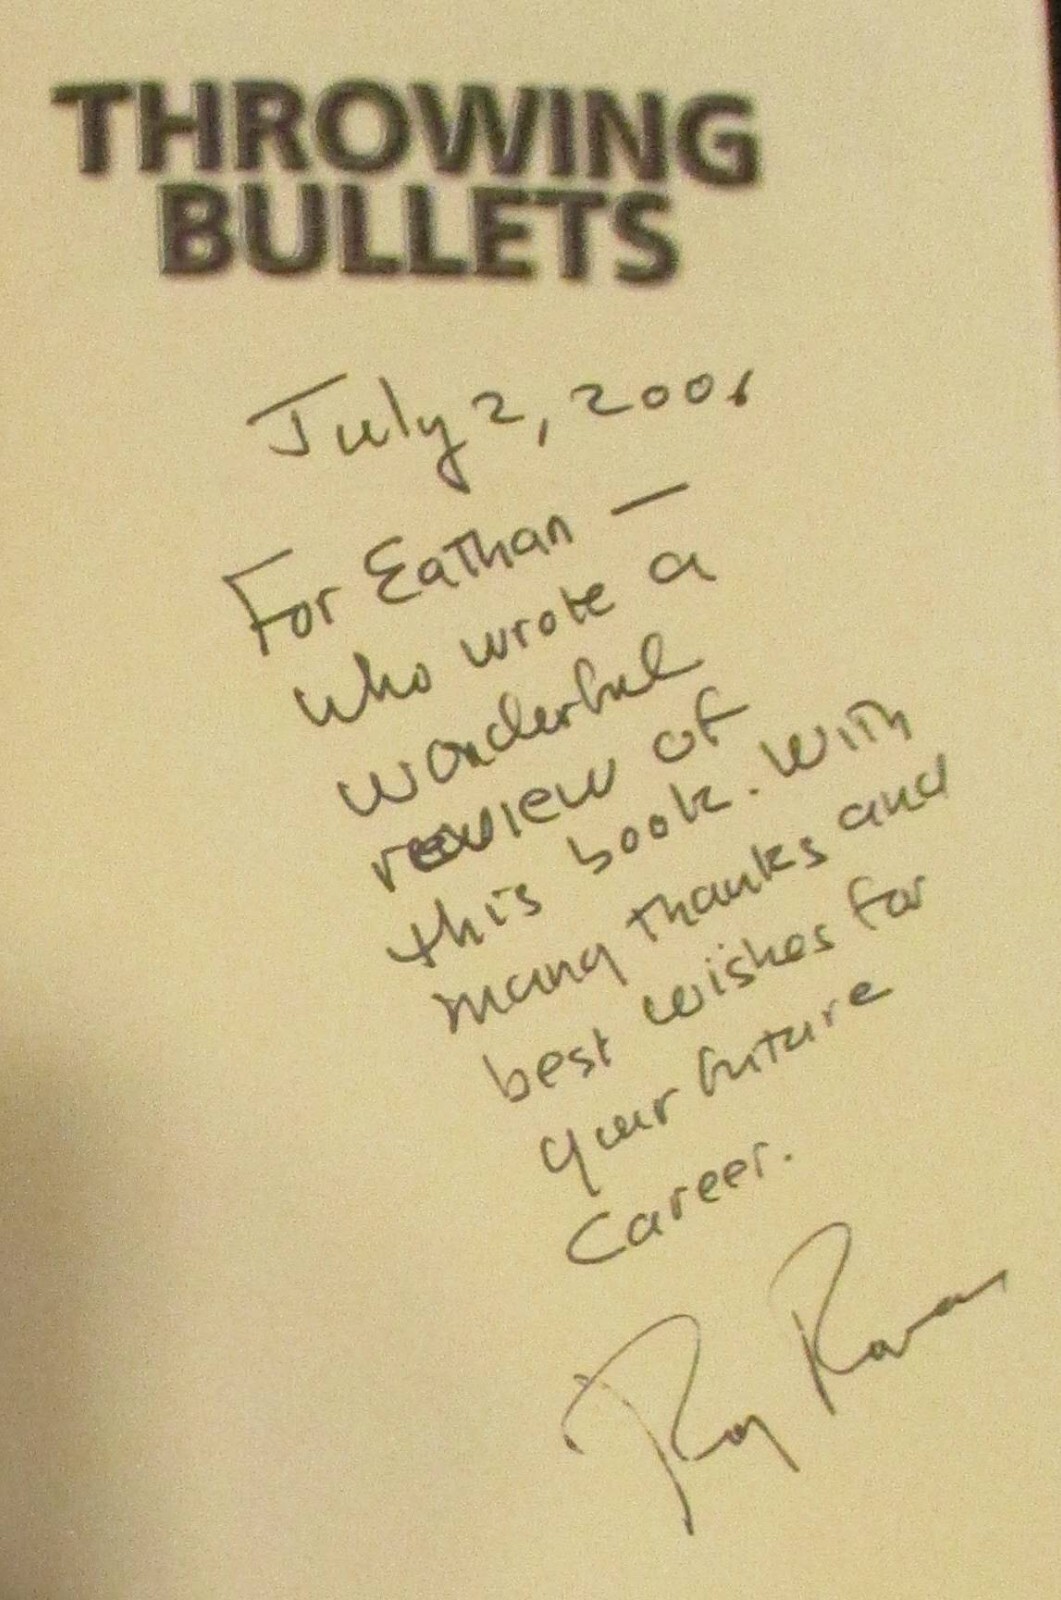 THROWING
BULLETS
July 2, 2006
For Eathan —
who wrote a
wonderful
review of
this book. With
many thanks and
best wishes for
your future
career.
Roy